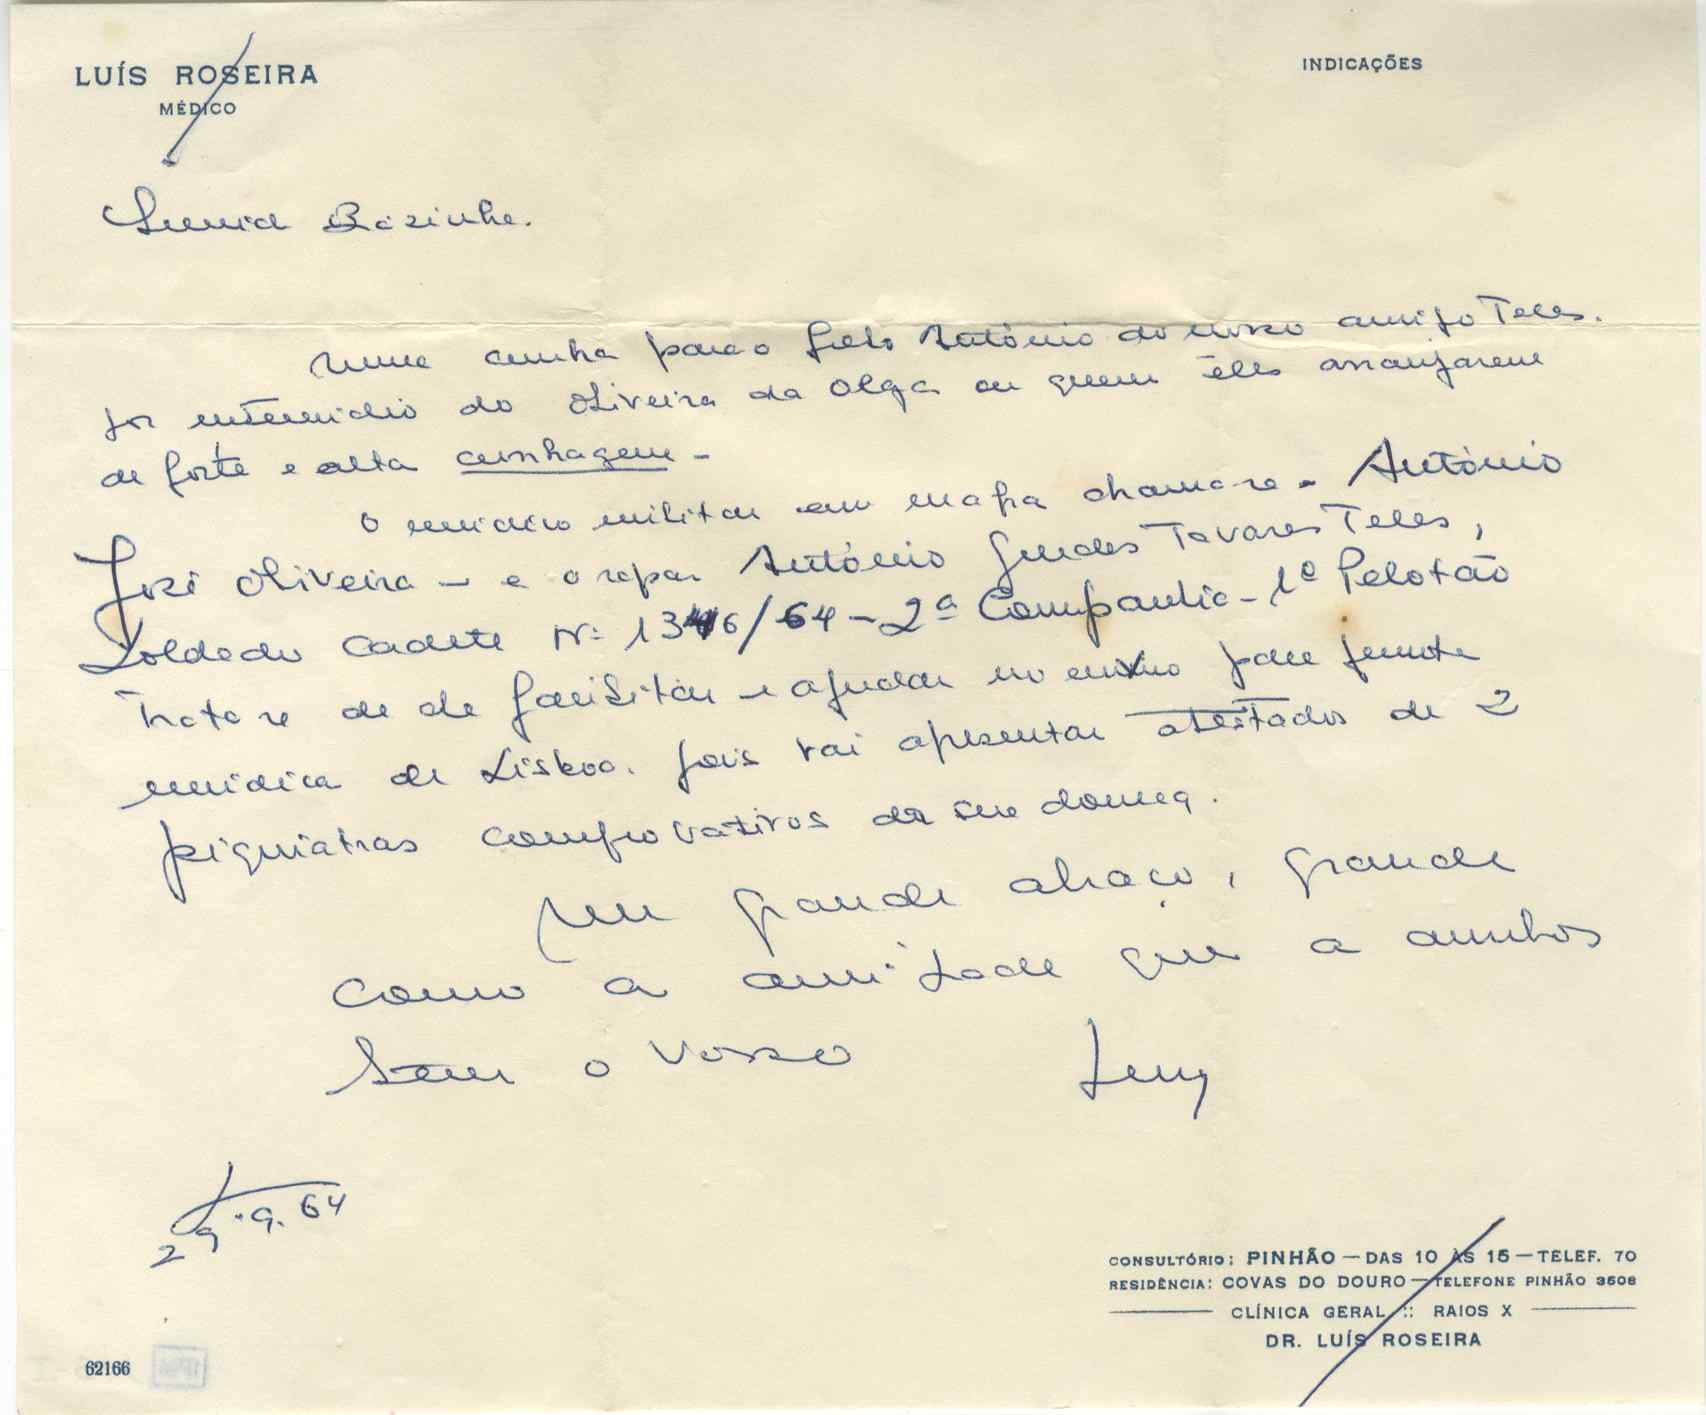 LUÍS ROSEIRA
MÉDICO
INDICAÇÕES
Rosinha.
Uma cunha para o filho António do nosso amigo Teles.
por intermédio do Oliveira da Olga ou quem êles arranjarem
de forte e alta cunhagem -
O médico militar em mafra chama-se - António
José Oliveira - e o rapaz António Guedes Tavares Teles,
Soldado Cadete Nº 1346/64 - 2ª Companhia - 1º Pelotão
Trata-se de facilitar e ajudar no envio para junta
médica de Lisboa. pois vai apresentar atestados de 2
psiquiatras comprovativos da sua doença.
Um grande abraço, grande
como a amizade que a ambos
tem o vosso
29.9.64
CONSULTÓRIO: PINHÃO — DAS 10 ÀS 15 — TELEF. 70
RESIDÊNCIA: COVAS DO DOURO — TELEFONE PINHÃO 3508
CLÍNICA GERAL :: RAIOS X
DR. LUÍS ROSEIRA
62166